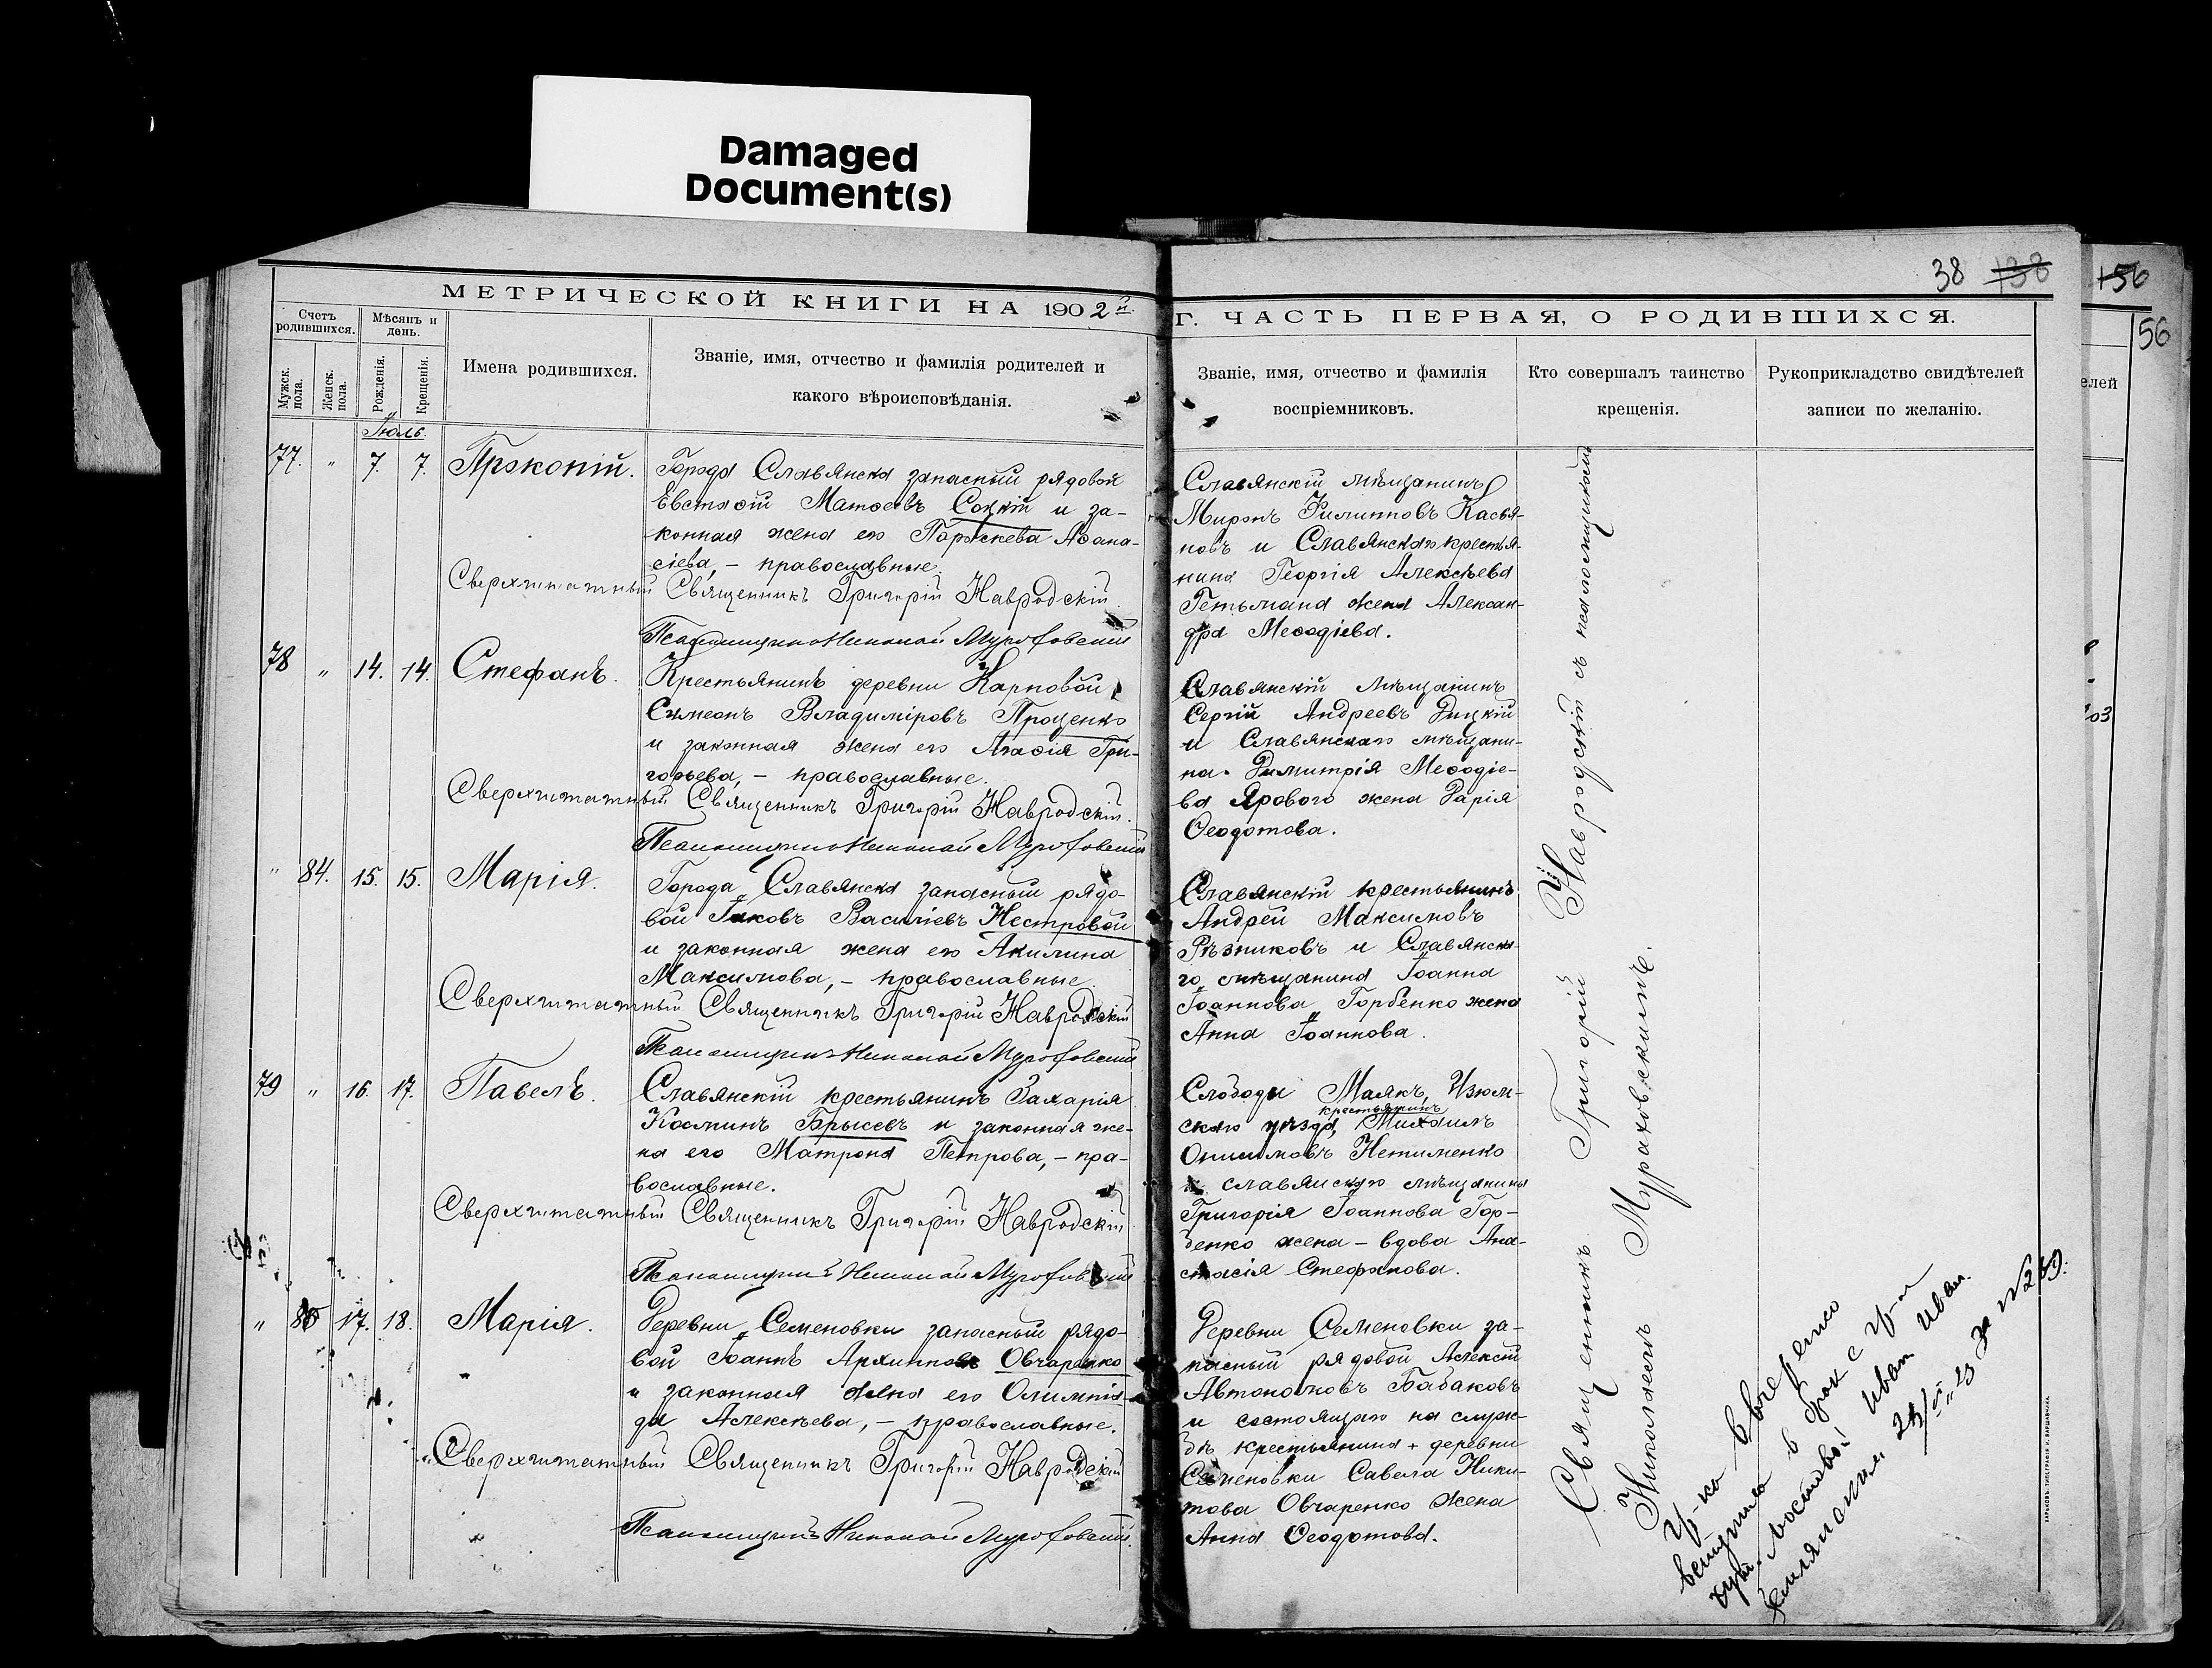 Damaged
Document(s)
38 138
156
56
МЕТРИЧЕСКОЙ КНИГИ НА 1902 й
Г. ЧАСТЬ ПЕРВАЯ, О РОДИВШИХСЯ.
Счетъ родившихся.
Мѣсяцъ и день.
Мужск. пола.
Женск. пола.
Рожденія.
Крещенія.
Имена родившихся.
Званіе, имя, отчество и фамилія родителей и
какого вѣроисповѣданія.
Званіе, имя, отчество и фамилія
воспріемниковъ.
Кто совершалъ таинство
крещенія.
Рукоприкладство свидѣтелей
записи по желанію.
елей
Іюль.
77. " 7. 7. Прокопій.
Города Славянска запасный рядовой
Евстафій Матѳеевъ Соцкій и за-
конная жена его Параскева Аѳана-
сіева, – православные.
Сверхштатный Священникъ Григорій Навродскій.
Псаломщикъ Николай Мураховскій
Славянскій мѣщанинъ
Миронъ Филипповъ Касья-
новъ и Славянскаго крестья-
нина Георгія Алексѣева
Гетьмана жена Алексан-
дра Меѳодіева.
78 " 14. 14. Стефанъ.
Крестьянинъ деревни Карповой
Симеонъ Владиміровъ Проценко
и законная жена его Агафія Гри-
горьева, – православные.
Сверхштатный Священникъ Григорій Навродскій.
Псаломщикъ Николай Мураховскій
Славянскій мѣщанинъ
Сергій Андреевъ Дицкій
и Славянскаго мѣщани-
на Димитрія Меѳодіе-
ва Ярового жена Дарія
Ѳеодотова.
" 84. 15. 15. Марія.
Города Славянска запасный рядо-
вой Іаковъ Василіевъ Нестровой
и законная жена его Акилина
Максимова, – православные.
Сверхштатный Священникъ Григорій Навродскій
Псаломщикъ Николай Мураховскій
Славянскій крестьянинъ
Андрей Максимовъ
Рѣзниковъ и Славянска-
го мѣщанина Іоанна
Іоаннова Горбенко жена
Анна Іоаннова.
79 " 16. 17. Павелъ.
Славянскій крестьянинъ Захарія
Косминъ Брысевъ и законная же-
на его Матрона Петрова, – пра-
вославные.
Сверхштатный Священникъ Григорій Навродскій
Псаломщикъ Николай Мураховскій
Слободы Маякъ, Изюм-
крестьянинъ
скаго уѣзда, Михаилъ
Онисимовъ Нетименко
и славянскаго мѣщанина
Григорія Іоаннова Гор-
бенко жена – вдова Ана-
стасія Стефанова.
" 85 17. 18. Марія.
Деревни Семеновки запасный рядо-
вой Іоаннъ Архипповъ Овчаренко
и законная жена его Олимпіа-
да Алексѣева, – православные.
Сверхштатный Священникъ Григорій Навродскій
Псаломщикъ Николай Мураховскій.
Деревни Семеновки за-
пасный рядовой Алексій
Автономовъ Бабаковъ
и состоящаго на служ-
бѣ крестьянина деревни
Семеновки Савела Ники-
това Овчаренко жена
Анна Ѳеодотова.
Священникъ Григорій Навродскій съ псаломщикомъ
Николаемъ Мураховскимъ.
в брак с гр-м
Иван Иван
за №
ХАРЬКОВЪ. ТИПОГРАФІЯ И. ВАРШАВЧИКА.